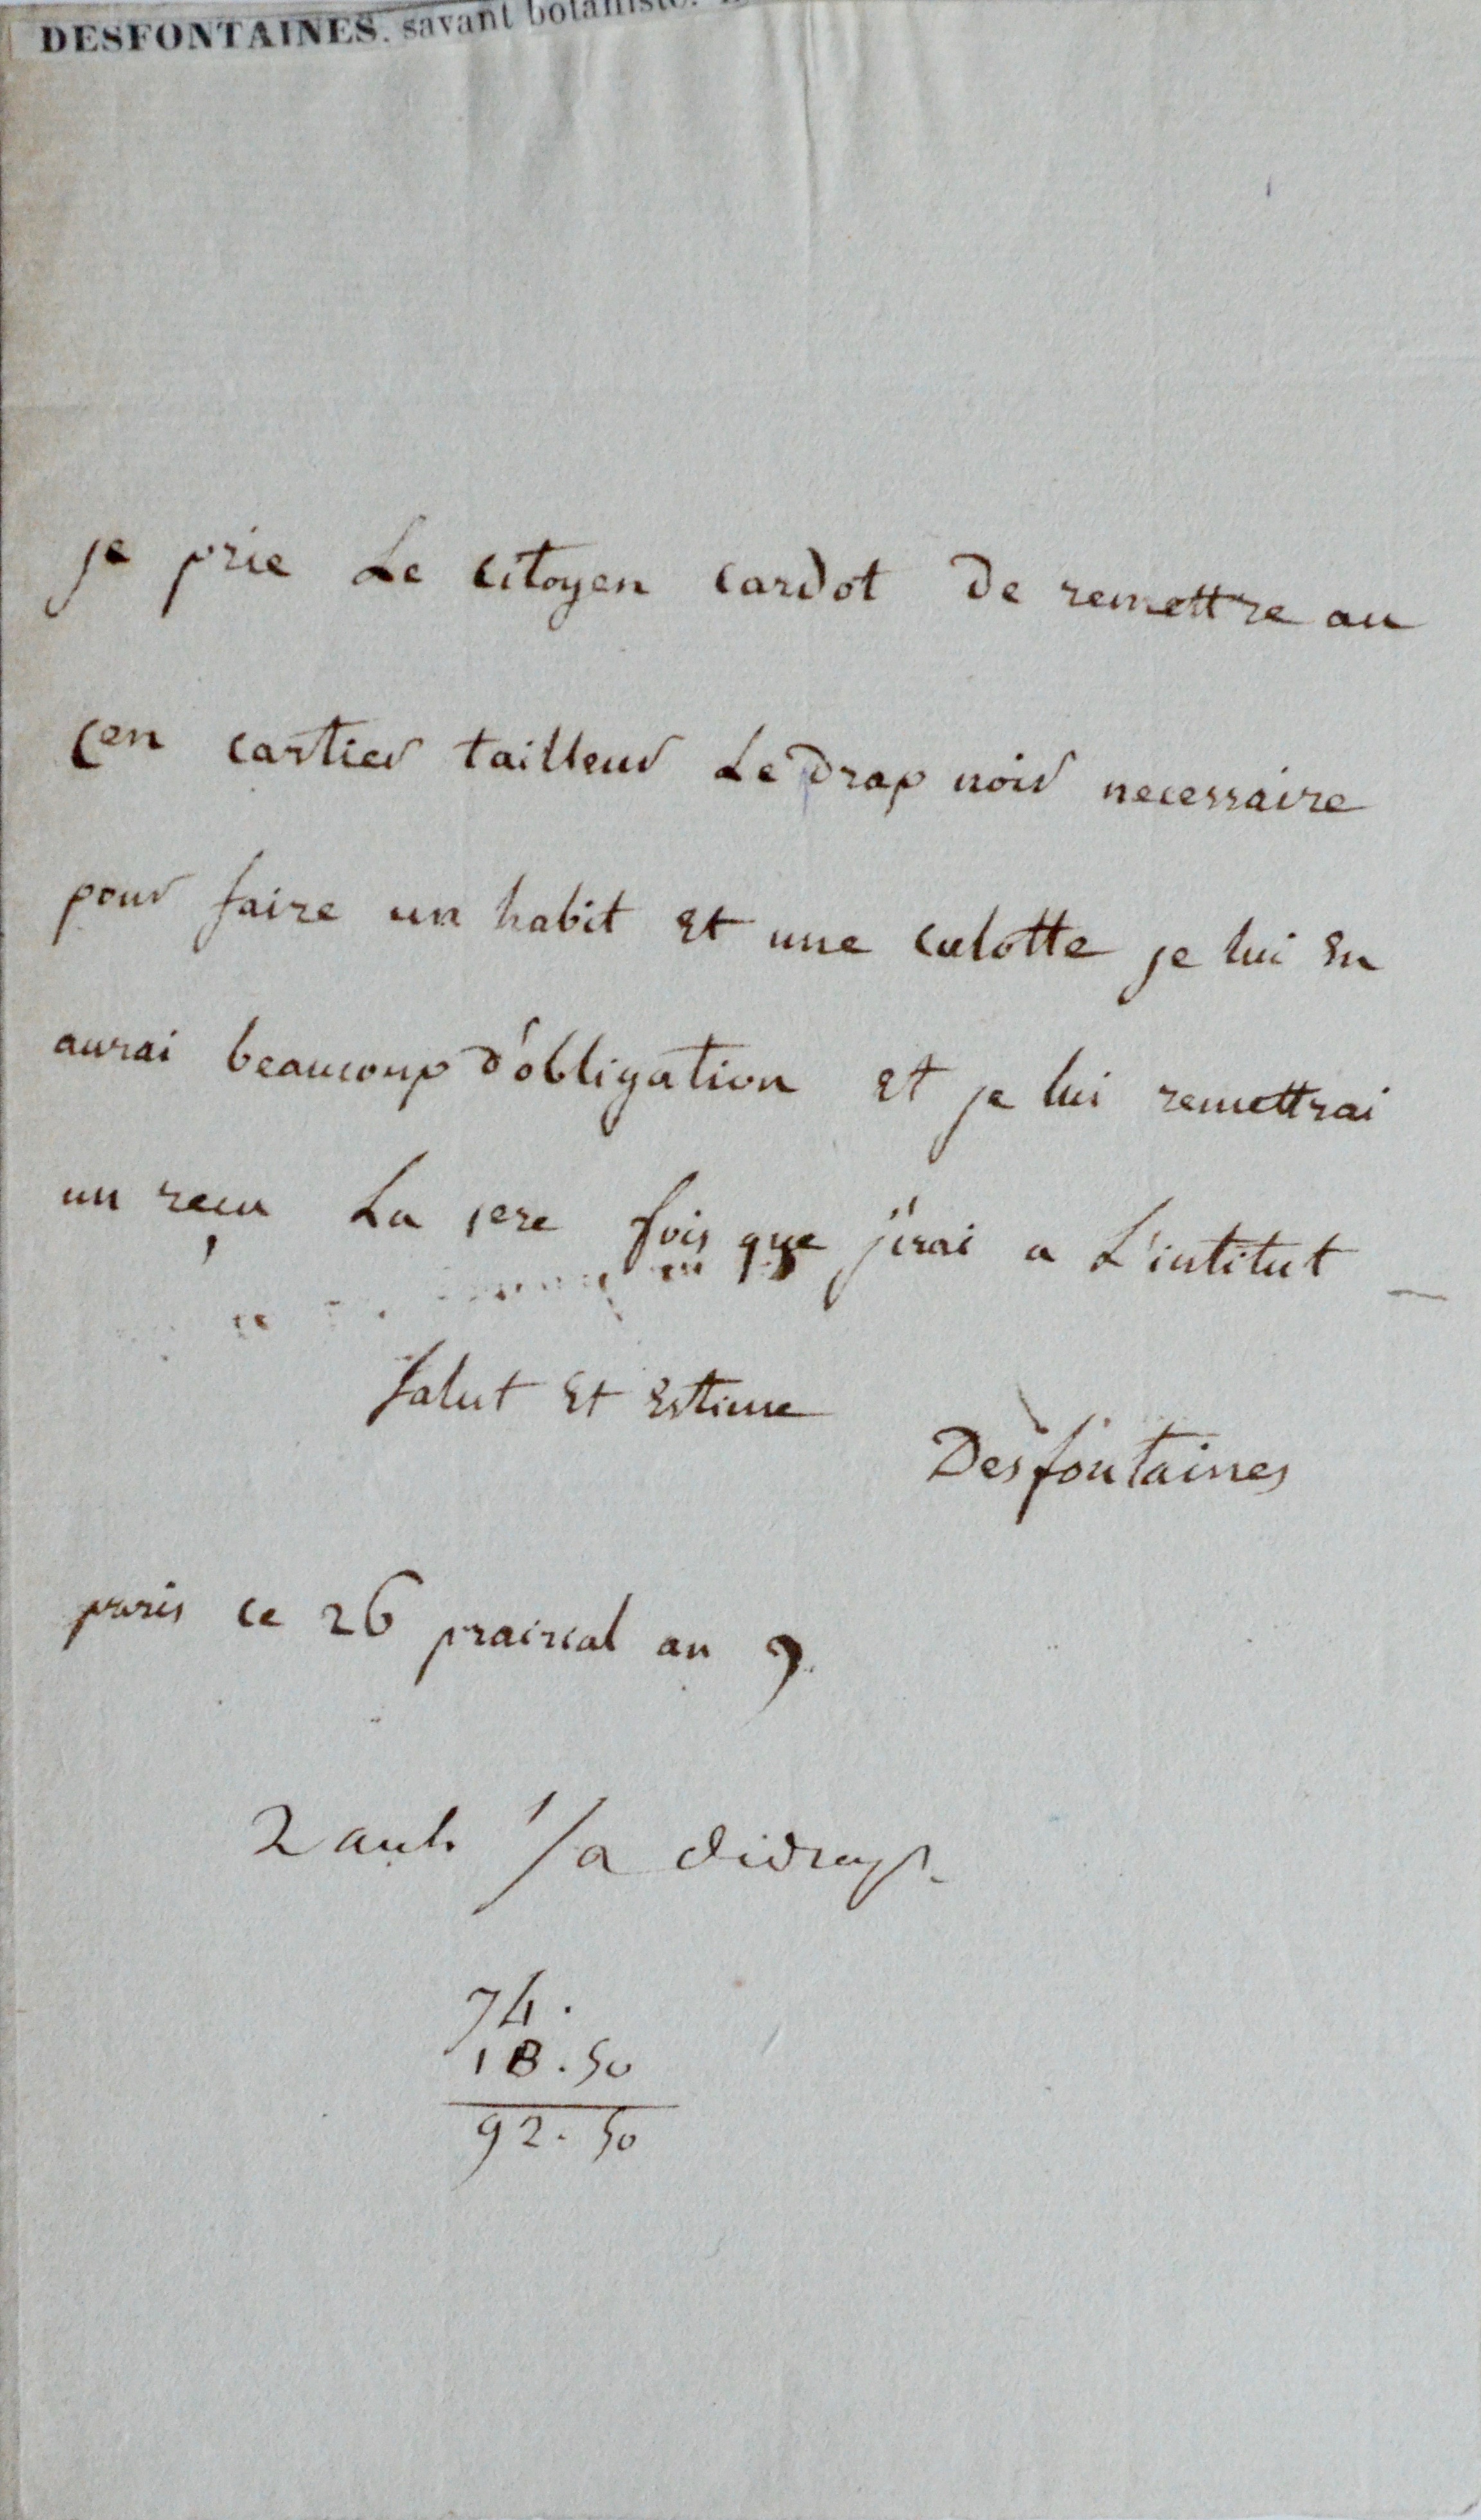 DESFONTAINES. savant botaniste.
je prie Le citoyen cardot de remettre au
Cen cartier tailleur Le drap noir necessaire
pour faire un habit Et une culotte je lui En
aurai beaucoup d'obligation Et je lui remettrai
un reçu La 1ere fois que j'irai a L'intitut
salut Et Estime
Desfontaines
paris ce 26 prairial an 9.
2 aul. 1/2
74.
18.50
92.50